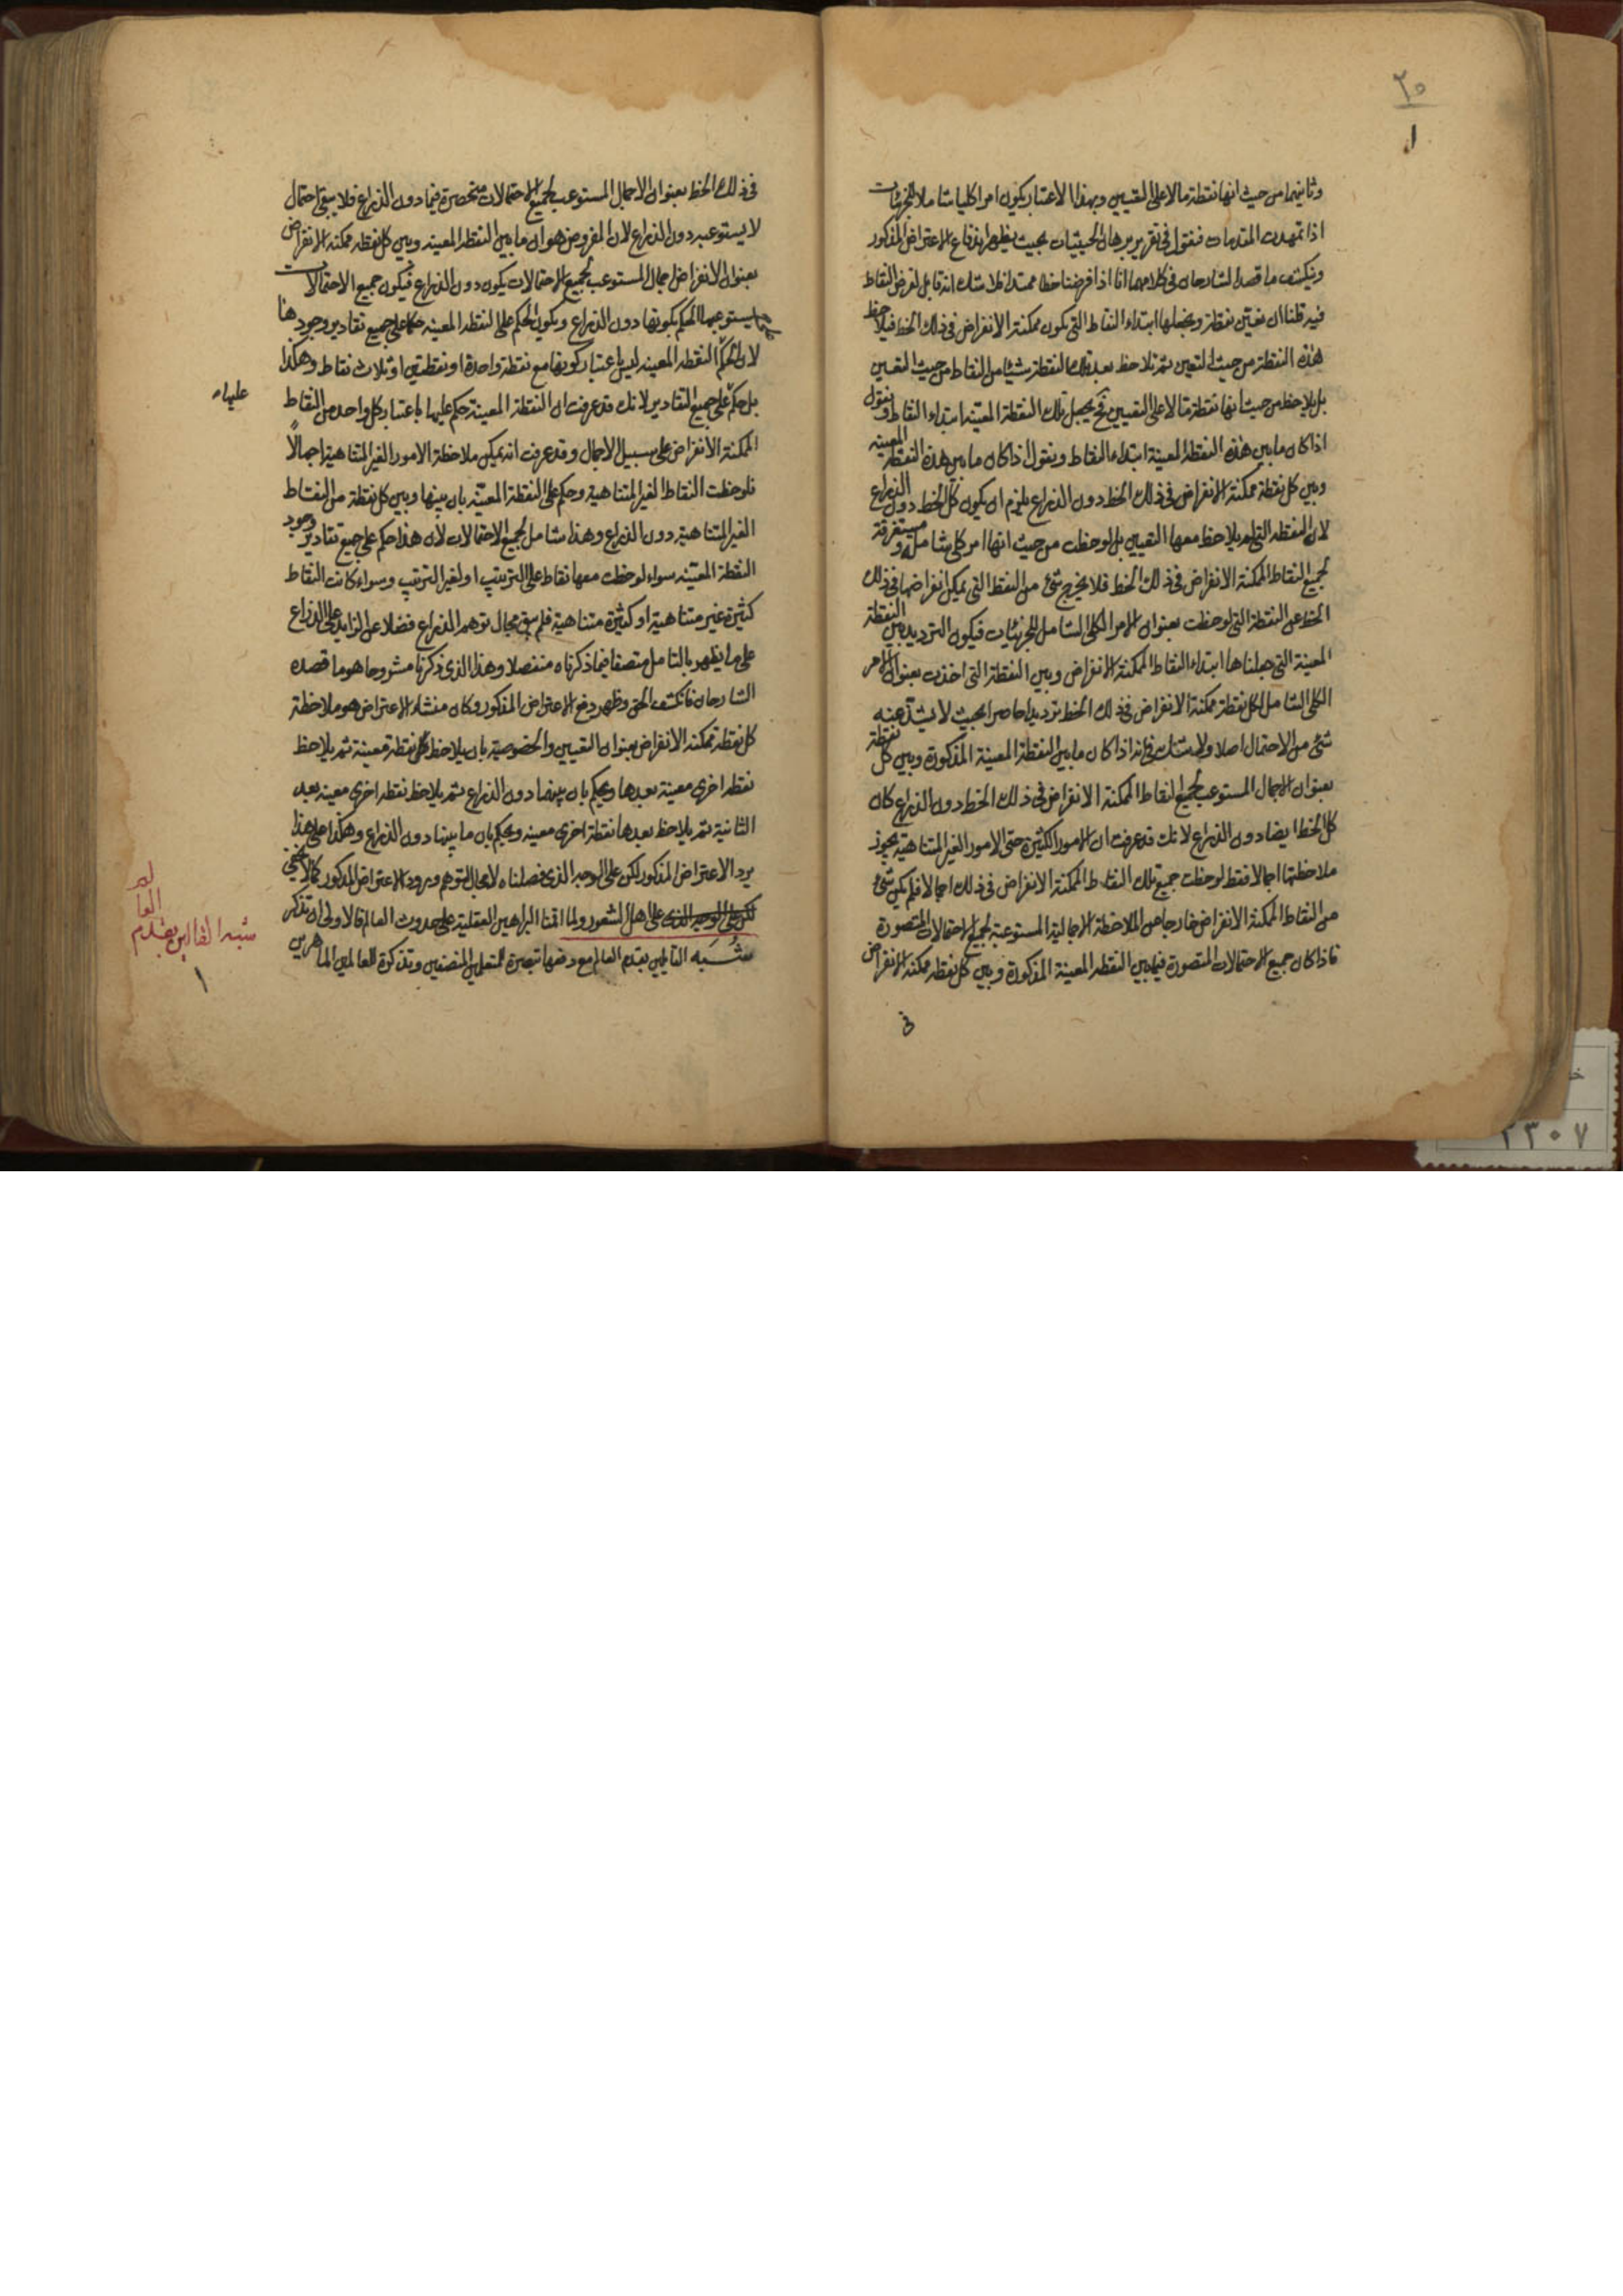 ٢٥
١
وثانيهما من حيث انها نقطة ما لا على التعيين وبهذا الاعتبار يكون امرا كليا شاملا للجزئيات
اذا تمهدت المقدمات فنقول في تقرير برهان الحيثيات بحيث يظهر اندفاع الاعتراض المذكور
وينكشف ما قصد الشارحان في كلامهما انا اذا فرضنا خطا ممتدا فلا شك انه قابل لفرض النقاط
فيه فلنا ان نعين نقطة ونجعلها ابتداء النقاط التي تكون ممكنة الانفراض في ذلك الخط فيلاحظ
هذه النقطة من حيث التعين ثم نلاحظ بعد تلك النقطة شيئا من النقاط من حيث التعين
بل يلاحظ من حيث انها نقطة ما لا على التعيين فح يجعل تلك النقطة المعينة ابتداء النقاط ونقول
اذا كان ما بين هذه النقطة المعينة ابتداء النقاط ونقول اذا كان ما بين هذه النقطة المعينة
وبين كل نقطة ممكنة الانفراض في ذلك الخط دون الذراع يلزم ان يكون كل الخط دون الذراع
لان النقطة التي لم يلاحظ معها التعيين بل لوحظت من حيث انها امر كلي شامل ومستغرقة
لجميع النقاط الممكنة الانفراض في ذلك الخط فلا يخرج شئ من النقط التي يمكن انفراضها في ذلك
الخط عن النقطة التي لوحظت بعنوان الامر الكلي الشامل للجزئيات فيكون الترديد بين النقطة
المعينة التي جعلناها ابتداء النقاط الممكنة الانفراض وبين النقطة التي اخذت بعنوان الامر
الكلي الشامل لكل نقطة ممكنة الانفراض في ذلك الخط ترديدا حاصرا بحيث لا يشذ عنه
شئ من الاحتمال اصلا ولا شك في انه اذا كان ما بين النقطة المعينة المذكورة وبين كل نقطة
بعنوان الاجمال المستوعب لجميع النقاط الممكنة الانفراض في ذلك الخط دون الذراع كان
كل الخط ايضا دون الذراع لانك قد عرفت ان الامور الكثيرة حتى الامور الغير المتناهية يجوز
ملاحظتها اجمالا فقط لوحظت جميع تلك النقاط الممكنة الانفراض في ذلك اجمالا فلم يكن شئ
من النقاط الممكنة الانفراض خارجا من الملاحظة الاجمالية المستوعبة لجميع الاحتمالات المتصورة
فاذا كان جميع الاحتمالات المتصورة فيما بين النقطه المعينة المذكورة وبين كل نقطه ممكنه الانفراض
في
في ذلك الخط بعنوان الاجمال المستوعب لجميع الاحتمالات منحصرة فيما دون الذراع فلا يبقى احتمال
لا يستوعبه دون الذراع لان المفروض هو ان ما بين النقطه المعينه وبين كل نقطه ممكنه الانفراض
بعنوان الانفراض اجمال المستوعب لجميع الاحتمالات يكون دون الذراع فيكون جميع الاحتمالات
يستوعبها الحكم بكونها دون الذراع ويكون الحكم على النقطه المعينه حكما على جميع تقادير وجودها
لان الحكم النقطه المعينه ليس باعتبار كونها مع نقطة واحدة او نقطتين او ثلاث نقاط وهكذا
بل حكم على جميع التقادير لانك قد عرفت ان النقطة المعينة حكم عليها باعتبار كل واحد من النقاط
عليها
الممكنة الانفراض على سبيل الاجمال وقد عرفت انه يمكن ملاحظة الامور الغير المتناهية اجمالًا
فلوحظت النقاط الغير المتناهية وحكم على النقطة المعينه بان بينها وبين كل نقطة من النقاط
الغير المتناهية دون الذراع وهذا شامل لجميع الاحتمالات لان هذا حكم على جميع تقادير وجود
النقطة المعينه سواء لوحظت معها نقاط على الترتيب او لغير الترتيب وسواء كانت النقاط
كثيرة غير متناهية او كثيرة متناهية فلم يبق مجال توهم الذراع فضلا عن الزايد على الذراع
على ما يظهر بالتامل متصفا فيما ذكرناه منفصلا وهذا الذي ذكرنا مشروحا هو ما قصده
الشارحان فانكشف الحق وظهر دفع الاعتراض المذكور وكان منشاء الاعتراض هو ملاحظة
كل نقطة ممكنه الانفراض بعنوان التعيين والخصوصية بان يلاحظ كل نقطة معينة ثم يلاحظ
نقطه اخرى معينة بعدها ويحكم بان بينهما دون الذراع ثم يلاحظ نقطه اخرى معينه بعد
الثانية ثم يلاحظ بعدها نقطة اخرى معينه ويحكم بان ما بينها دون الذراع وهكذا على هذا
يرد الاعتراض المذكور لكن على الوجه الذي فصلناه لا مجال لتوهم ورود الاعتراض المذكور كما لا يخفى
لكن على الوجه الذي على اهل الشعور ولما اقمنا البراهين العقلية على حدوث العالم فالاولى ان نذكر
شُبَه القايلين بقدم العالم مع دفعها تبصرة للمتعلمين المنصفين وتذكرة للعالمين الماهرين
شبه القائلين بقدم
العا
لم
١
٢٣٠٧